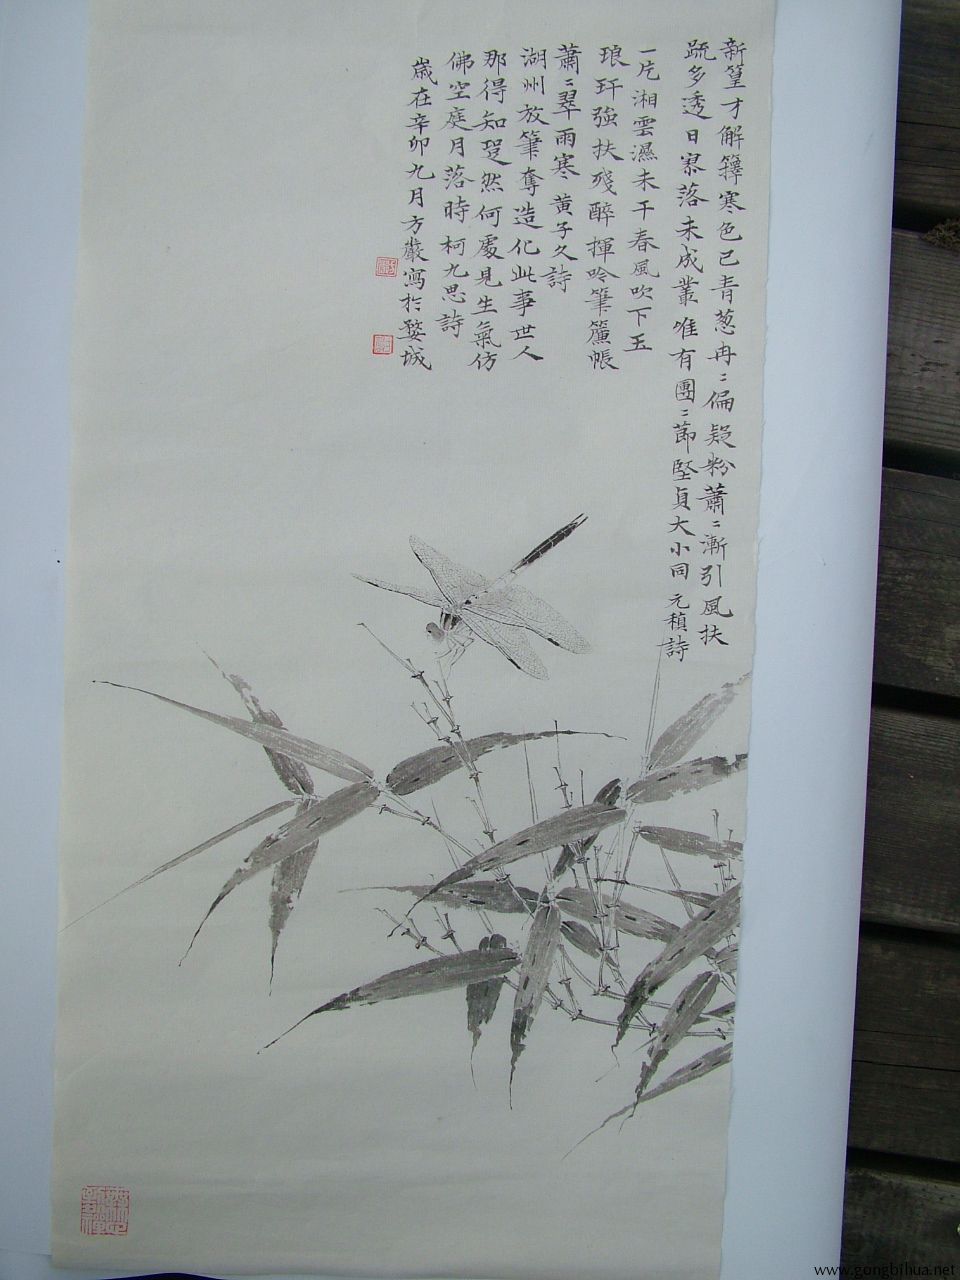 新篁才解籜寒色已青葱冉〻偏疑粉蕭〻漸引風扶
疏多透日寮落未成叢唯有團〻節堅貞大小同 元稹詩
一片湘雲濕未干春風吹下玉
琅玕強扶殘醉揮吟筆簾帳
蕭〻翠雨寒 黃子久詩
湖州放筆奪造化此事世人
那得知跫然何處見生氣仿
佛空庭月落時 柯九思詩
歲在辛卯九月方嚴寫於婺城
www.gongbihua.net